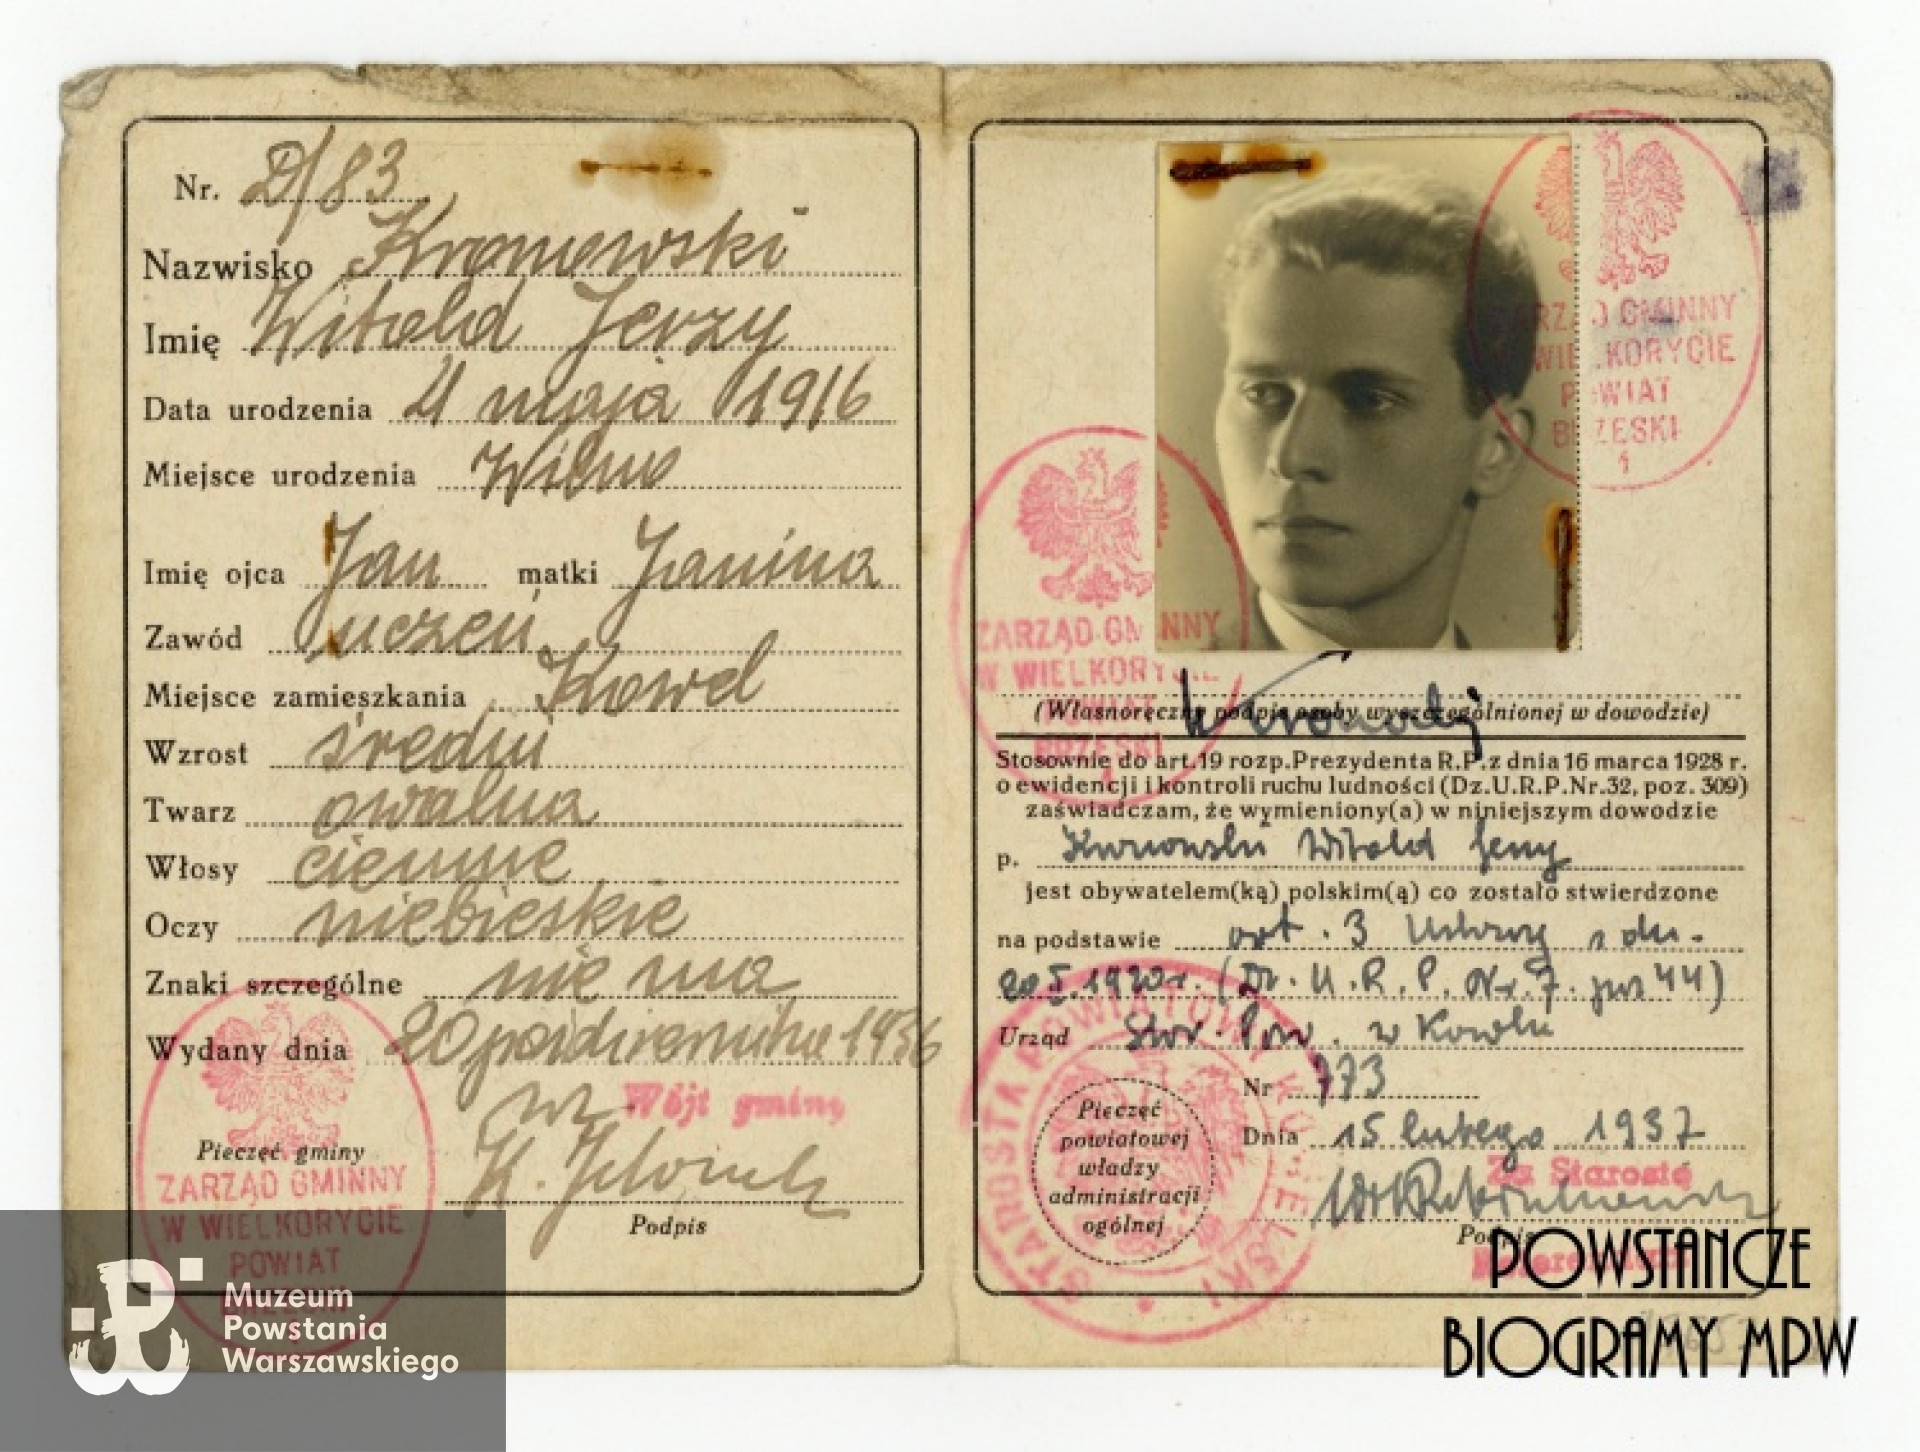 Nr. D/83
Nazwisko Kronowski
Imię Witold Jerzy
Data urodzenia 4 maja 1916
Miejsce urodzenia Wilno
Imię ojca Jan matki Janina
Zawód uczeń
Miejsce zamieszkania Kowel
Wzrost średni
Twarz owalna
Włosy ciemne
Oczy niebieskie
Znaki szczególne nie ma
Wydany dnia 20 października 1936
wz Wójt gminy
Pieczęć gminy
ZARZĄD GMINNY
W WIELKORYCIE
POWIAT
Podpis
Muzeum
Powstania
Warszawskiego
ZARZĄD GMINNY
W WIELKORYCIE
POWIAT
BRZESKI
1
ZARZĄD GMINNY
W WIELKORYCIE
POWIAT
BRZESKI
(Własnoręczny podpis osoby wyszczególnionej w dowodzie)
Stosownie do art.19 rozp.Prezydenta R.P.z dnia 16 marca 1928 r.
o ewidencji i kontroli ruchu ludności (Dz.U.R.P.Nr.32, poz. 309)
zaświadczam, że wymieniony(a) w niniejszym dowodzie
p. Kronowski Witold Jerzy
jest obywatelem(ką) polskim(ą) co zostało stwierdzone
na podstawie art. 3 Ustawy z dn.
20 I. 1920 r. (Dz. U. R. P. Nr. 7. poz 44)
Urząd Star. Pow. w Kowlu
Nr 773
Dnia 15 lutego 1937
Za Starostę
Pieczęć
powiatowej
władzy
administracji
ogólnej
STAROSTA POWIATOWY KOWELSKI
Podpis
POWSTAŃCZE
BIOGRAMY MPW